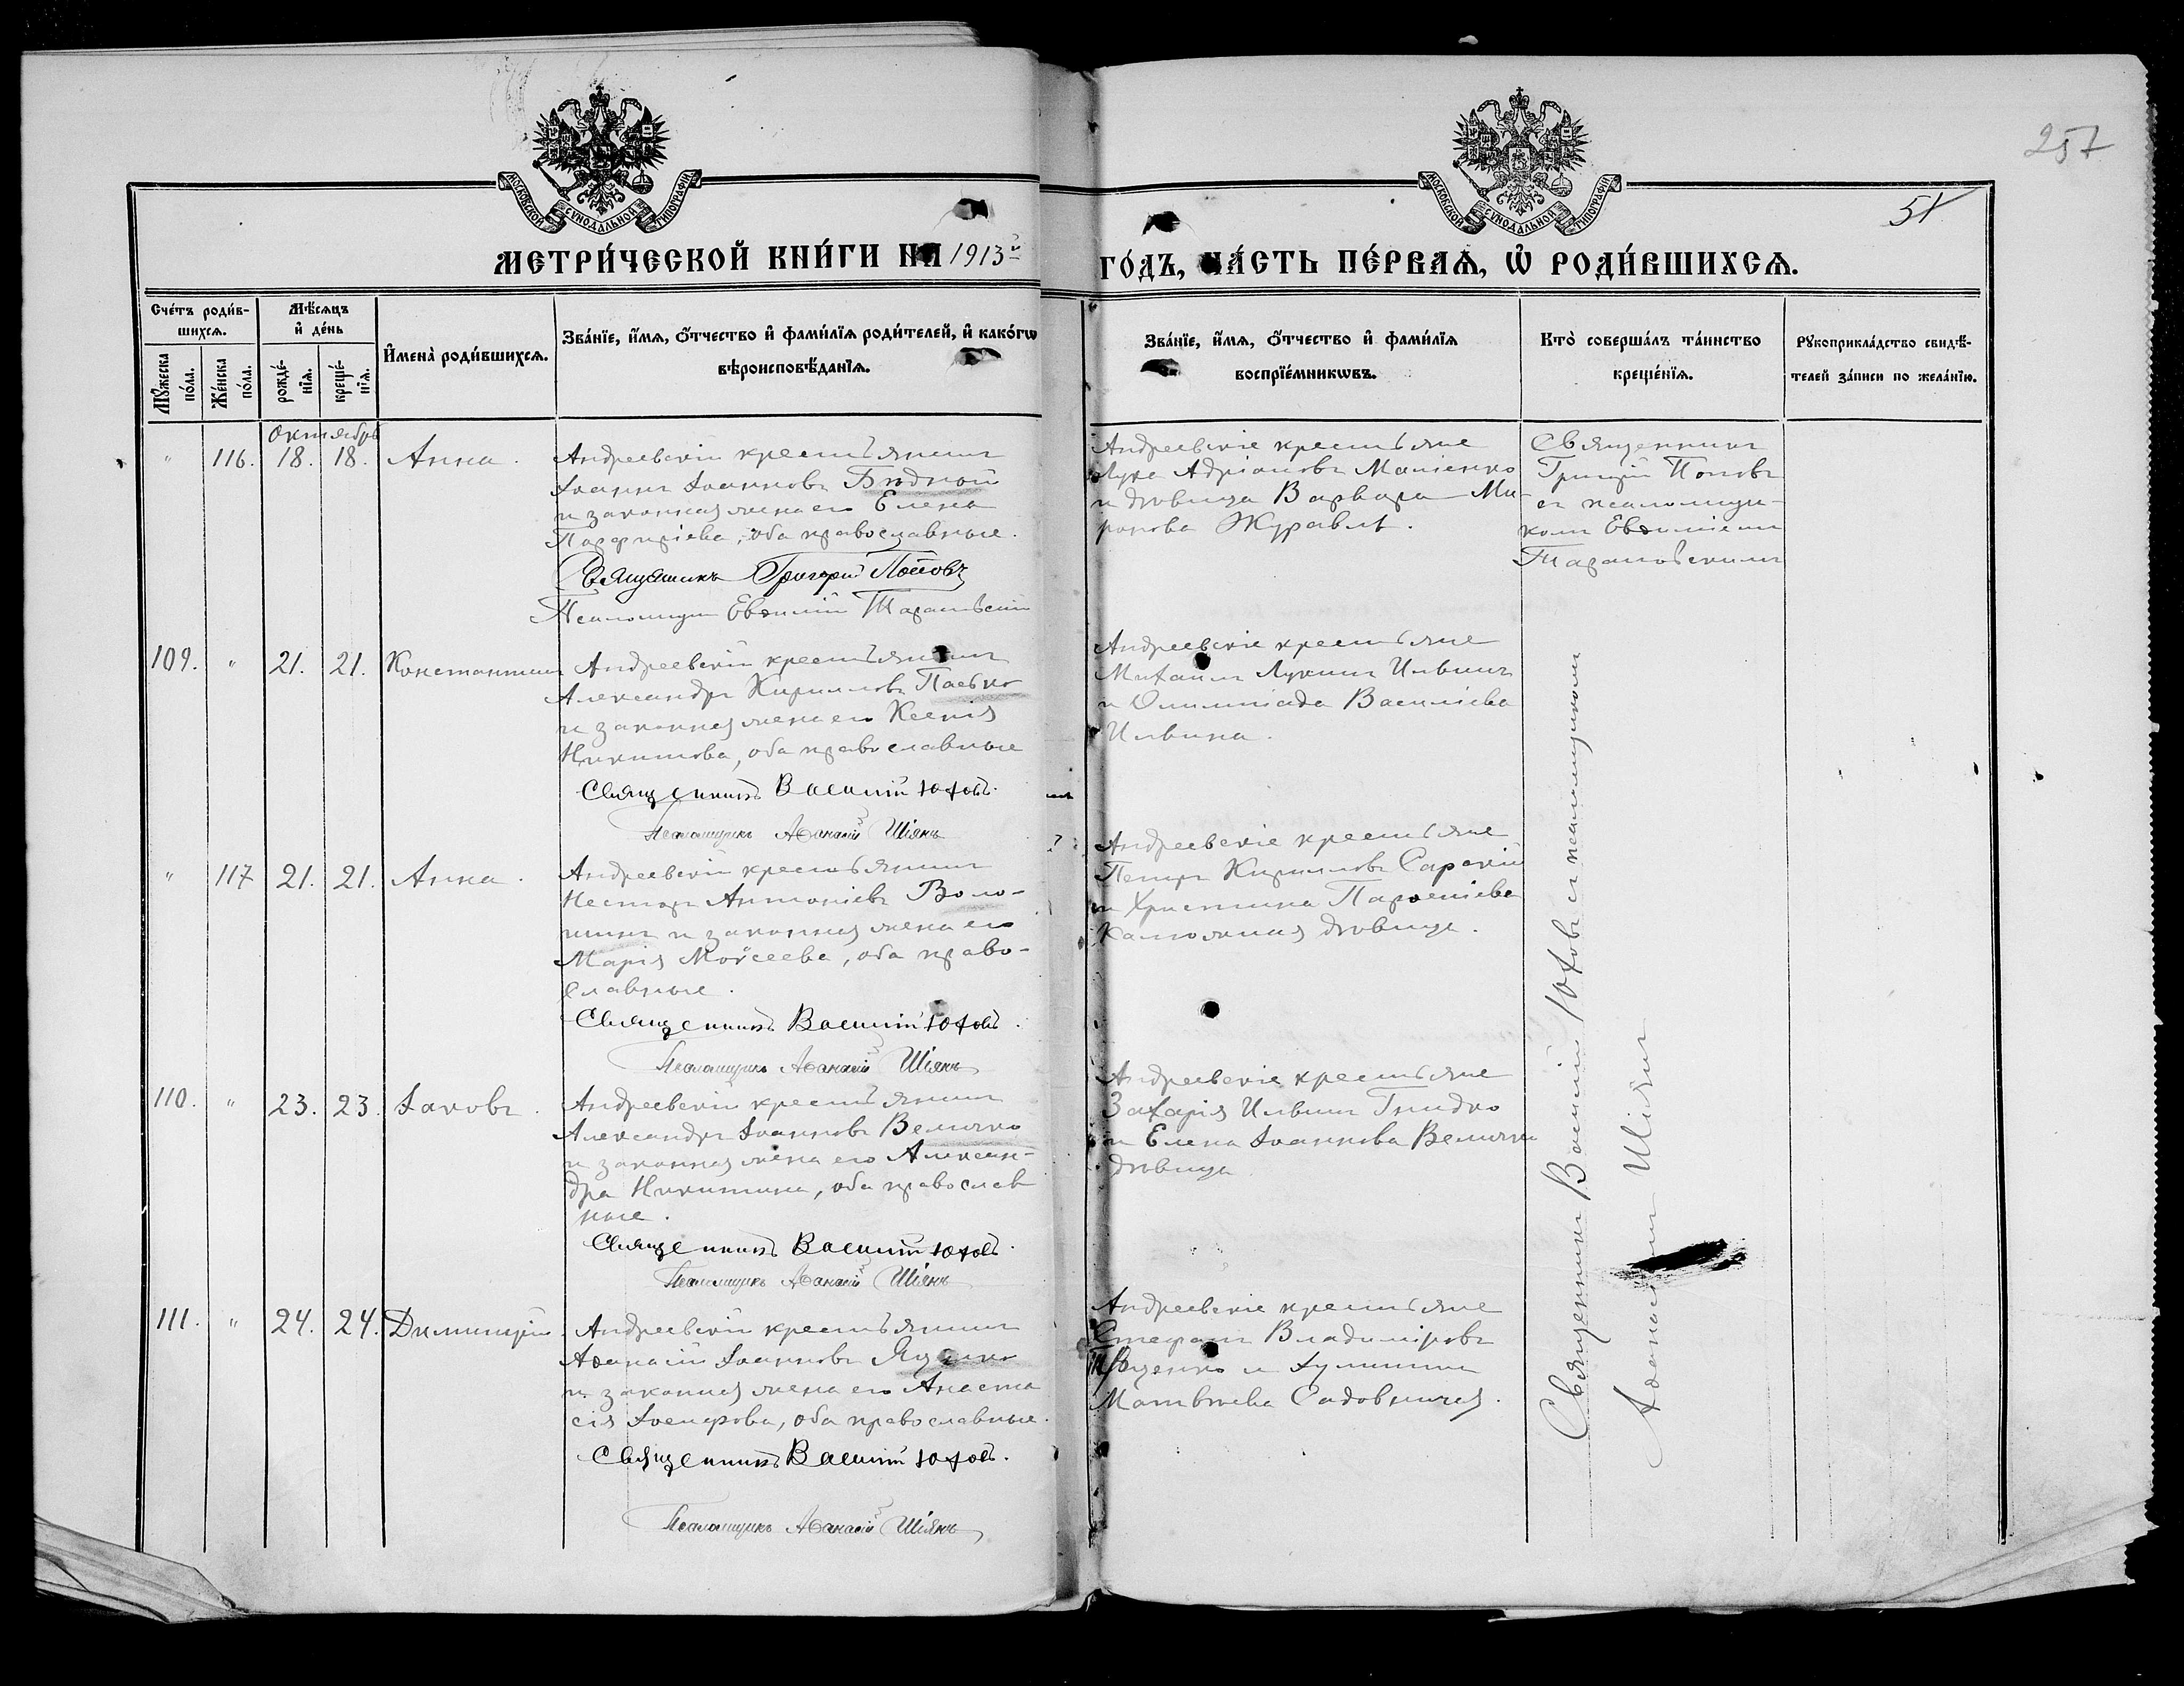 257
51
МОСКОВСКОЙ СѴНОДАЛЬНОЙ ТИПОГРАФІИ
МОСКОВСКОЙ СѴНОДАЛЬНОЙ ТИПОГРАФІИ
МЕТРИ́ЧЕСКОЙ КНИ́ГИ НА 1913й ГО́ДЪ, ЧА́СТЬ ПЕ́РВАѦ, Ѡ҆ РОДИ́ВШИХСѦ.
Сче́тъ роди́в-
шихсѧ.
Мꙋ́жеска по́ла.
Же́нска по́ла.
Мѣ́сѧцъ
и҆ де́нь
рожде́-
нїѧ.
креще́-
нїѧ.
И҆мена̀ роди́вшихсѧ.
Зва́нїе, и҆́мѧ, ѻ҆́тчество и҆ фами́лїѧ роди́телей, и҆ како́гѡ
вѣроисповѣ́данїѧ.
Зва́нїе, и҆́мѧ, ѻ҆́тчество и҆ фами́лїѧ
воспрїе́мникѡвъ.
Кто̀ соверша́лъ та́инство
креще́нїѧ.
Рꙋкоприкла́дство свидѣ́-
телей за́писи по жела́нїю.
Октябрь
" 116. 18. 18. Анна.
Андреевскій крестьянинъ
Іоаннъ Іоанновъ Бѣдной
и законная жена его Елена
Порфиріева, оба православные.
Священникъ Григорій Поповъ
Псаломщикъ Евѳимій Тарановскій
Андреевскіе крестьяне
Лука Адріановъ
и дѣвица Варвара Ми-
ронова Журавль.
Священникъ
Григорій Поповъ
съ псаломщи-
комъ Евѳиміемъ
Тарановскимъ
109. " 21. 21. Константинъ
Андреевскій крестьянинъ
Александръ Кирилловъ Пасько
и законная жена его Ксенія
Никитова, оба православные
Священникъ Василій Юховъ.
Псаломщикъ Аѳанасій Шіянъ
Андреевскіе крестьяне
Михаилъ Лукинъ Ильинъ
и Олимпіада Василіева
Ильина.
" 117 21. 21. Анна.
Андреевскій крестьянинъ
Несторъ Антоніевъ Воло-
шинъ и законная жена его
Марія Моѵсеева, оба право-
славные.
Священникъ Василій Юховъ.
Псаломщикъ Аѳанасій Шіянъ
Андреевскіе крестьяне
Петръ Кирилловъ Сарскій
и Христина Парѳеніева
дѣвица.
110. " 23. 23. Іаковъ.
Андреевскій крестьянинъ
Александръ Іоанновъ Величко
и законная жена его Алексан-
дра Никитина, оба православ
ные.
Священникъ Василій Юховъ.
Псаломщикъ Аѳанасій Шіянъ
Андреевскіе крестьяне
Захарія Ильинъ Гнидко
и Елена Іоаннова Величко
дѣвица
111. " 24. 24. Димитрій.
Андреевскій крестьянинъ
Аѳанасій Іоанновъ Яценко
и законная жена его Анаста
сія Іосифова, оба православные.
Священникъ Василій Юховъ.
Псаломщикъ Аѳанасій Шіянъ
Андреевскіе крестьяне
Стефанъ Владиміровъ
и Іулитта
Матвѣева Садовничая.
Священникъ Василій Юховъ съ псаломщикомъ
Аѳанасіемъ Шіянъ